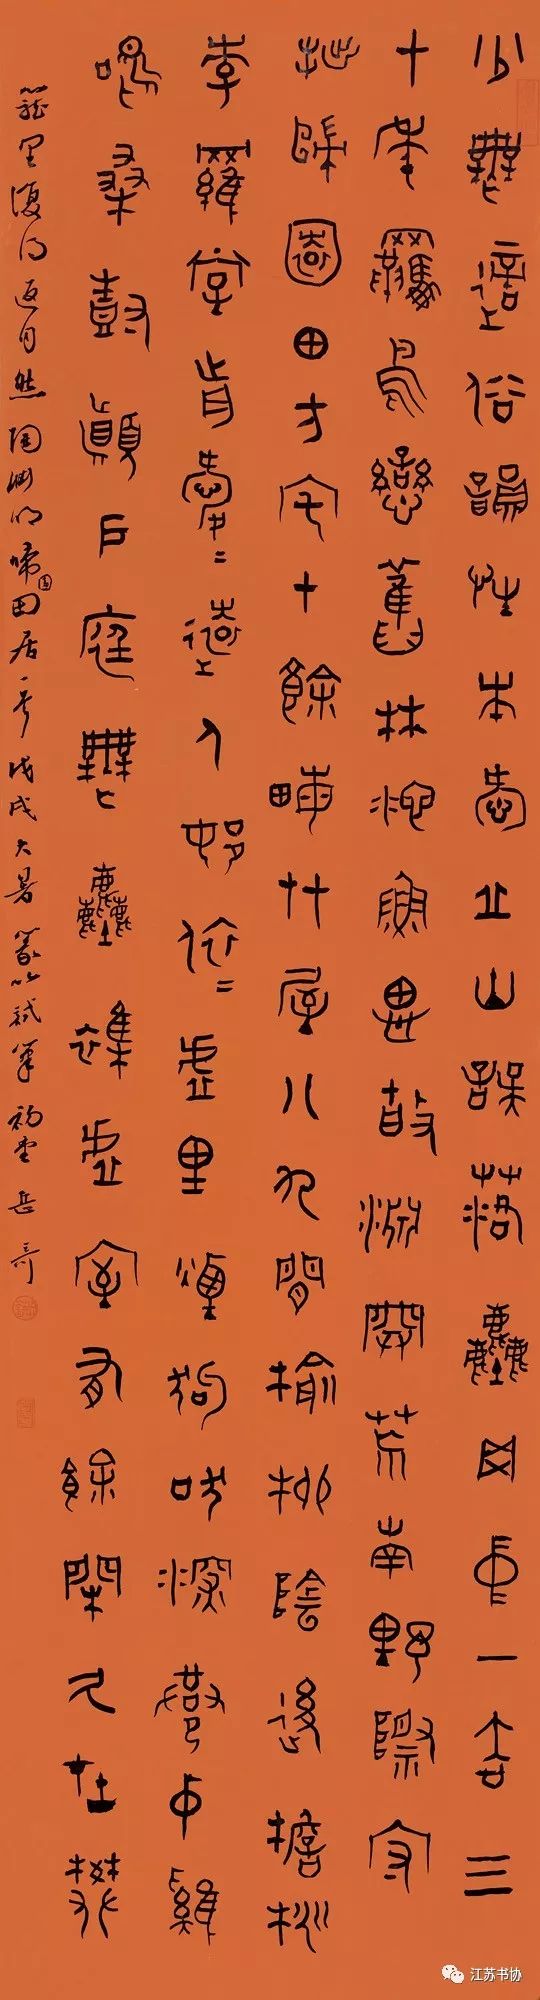 少無適俗韻性本愛丘山誤落塵网中一去三
十年羈鳥戀舊林池魚思故淵開荒南野際守
拙歸園田方宅十餘畝艸屋八九間榆柳陰後檐桃
李羅堂前曖〻遠人邨依〻虛里煙狗吠深巷中雞
鳴桑樹顛戶庭無塵雜虛室有餘閒久在樊
籠里復得返自然陶淵明歸園田居一首戊戌大暑篆以試筆岳奇
江苏书协